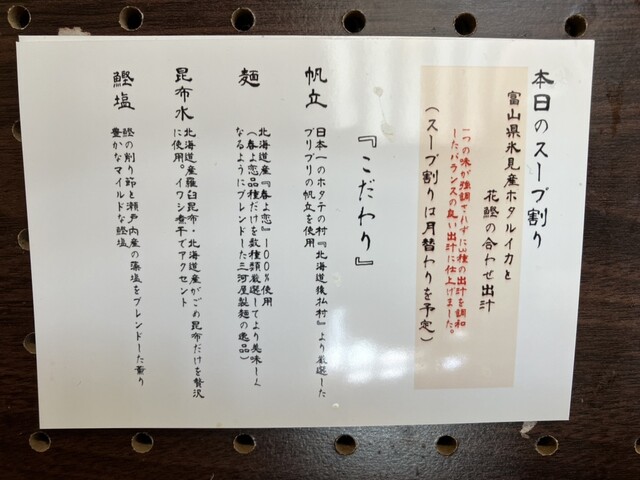 本日のスープ割り
富山県氷見産ホタルイカと
花鰹の合わせ出汁
一つの味が強調されずに3種の出汁を調和
したバランスの良い出汁に仕上げました。
(スープ割りは月替わりを予定)
『こだわり』
帆立
日本一のホタテの村『北海道猿払村』より厳選した
プリプリの帆立を使用
麺
北海道産『春よ恋』100%使用
(春よ恋品種だけを数種類厳選してより美味しく
なるようにブレンドした三河屋製麺の逸品)
昆布水
北海道産羅臼昆布・北海道産がごめ昆布だけを贅沢
に使用。イワシ煮干でアクセント
鰹塩
鰹の削り節と瀬戸内産の藻塩をブレンドした香り
豊かなマイルドな鰹塩